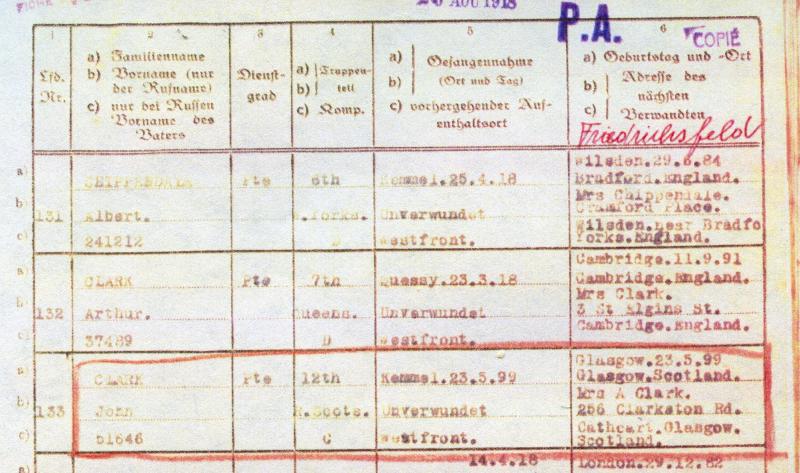 20 AOU 1918
P.A.
COPIE
1
2
4
5
6
Lfd.
Nr.
a) Familienname
b) Vorname (nur
der Rufname)
c) nur bei Russen
Vorname des
Vaters
Dienst-
grad
a) Truppen-
b) teil
c) Komp.
a) Gefangennahme
b) (Ort und Tag)
c) vorhergehender Auf-
enthaltsort
a) Geburtstag und -Ort
b) Adresse des
nächsten
c) Verwandten
Friedrichsfeld
a) CHIPPENDALE Pte 6th Kemmel.25.4.18 Wilsden.29.6.84
Bradford.England.
Mrs Chippendale.
b) 131 Albert. W.Yorks. Unverwundet Cramford Place.
Wilsden.near Bradfo
c) 241212 D Westfront. Yorks.England.
Cambridge.11.9.91
a) CLARK Pte 7th Quessy.23.3.18 Cambridge.England.
Mrs Clark.
b) 132 Arthur. Queens. Unverwundet 3 St Elgins St.
Cambridge.England.
c) 37489 D Westfront.
Glasgow.23.5.99
a) CLARK Pte 12th Kemmel.23.5.99 Glasgow.Scotland.
Mrs A Clark.
b) 133 John R.Scots. Unverwundet 256 Clarkston Rd.
Cathcart.Glasgow.
c) 51646 C Westfront. Scotland.
14.4.18 London.29.12.82